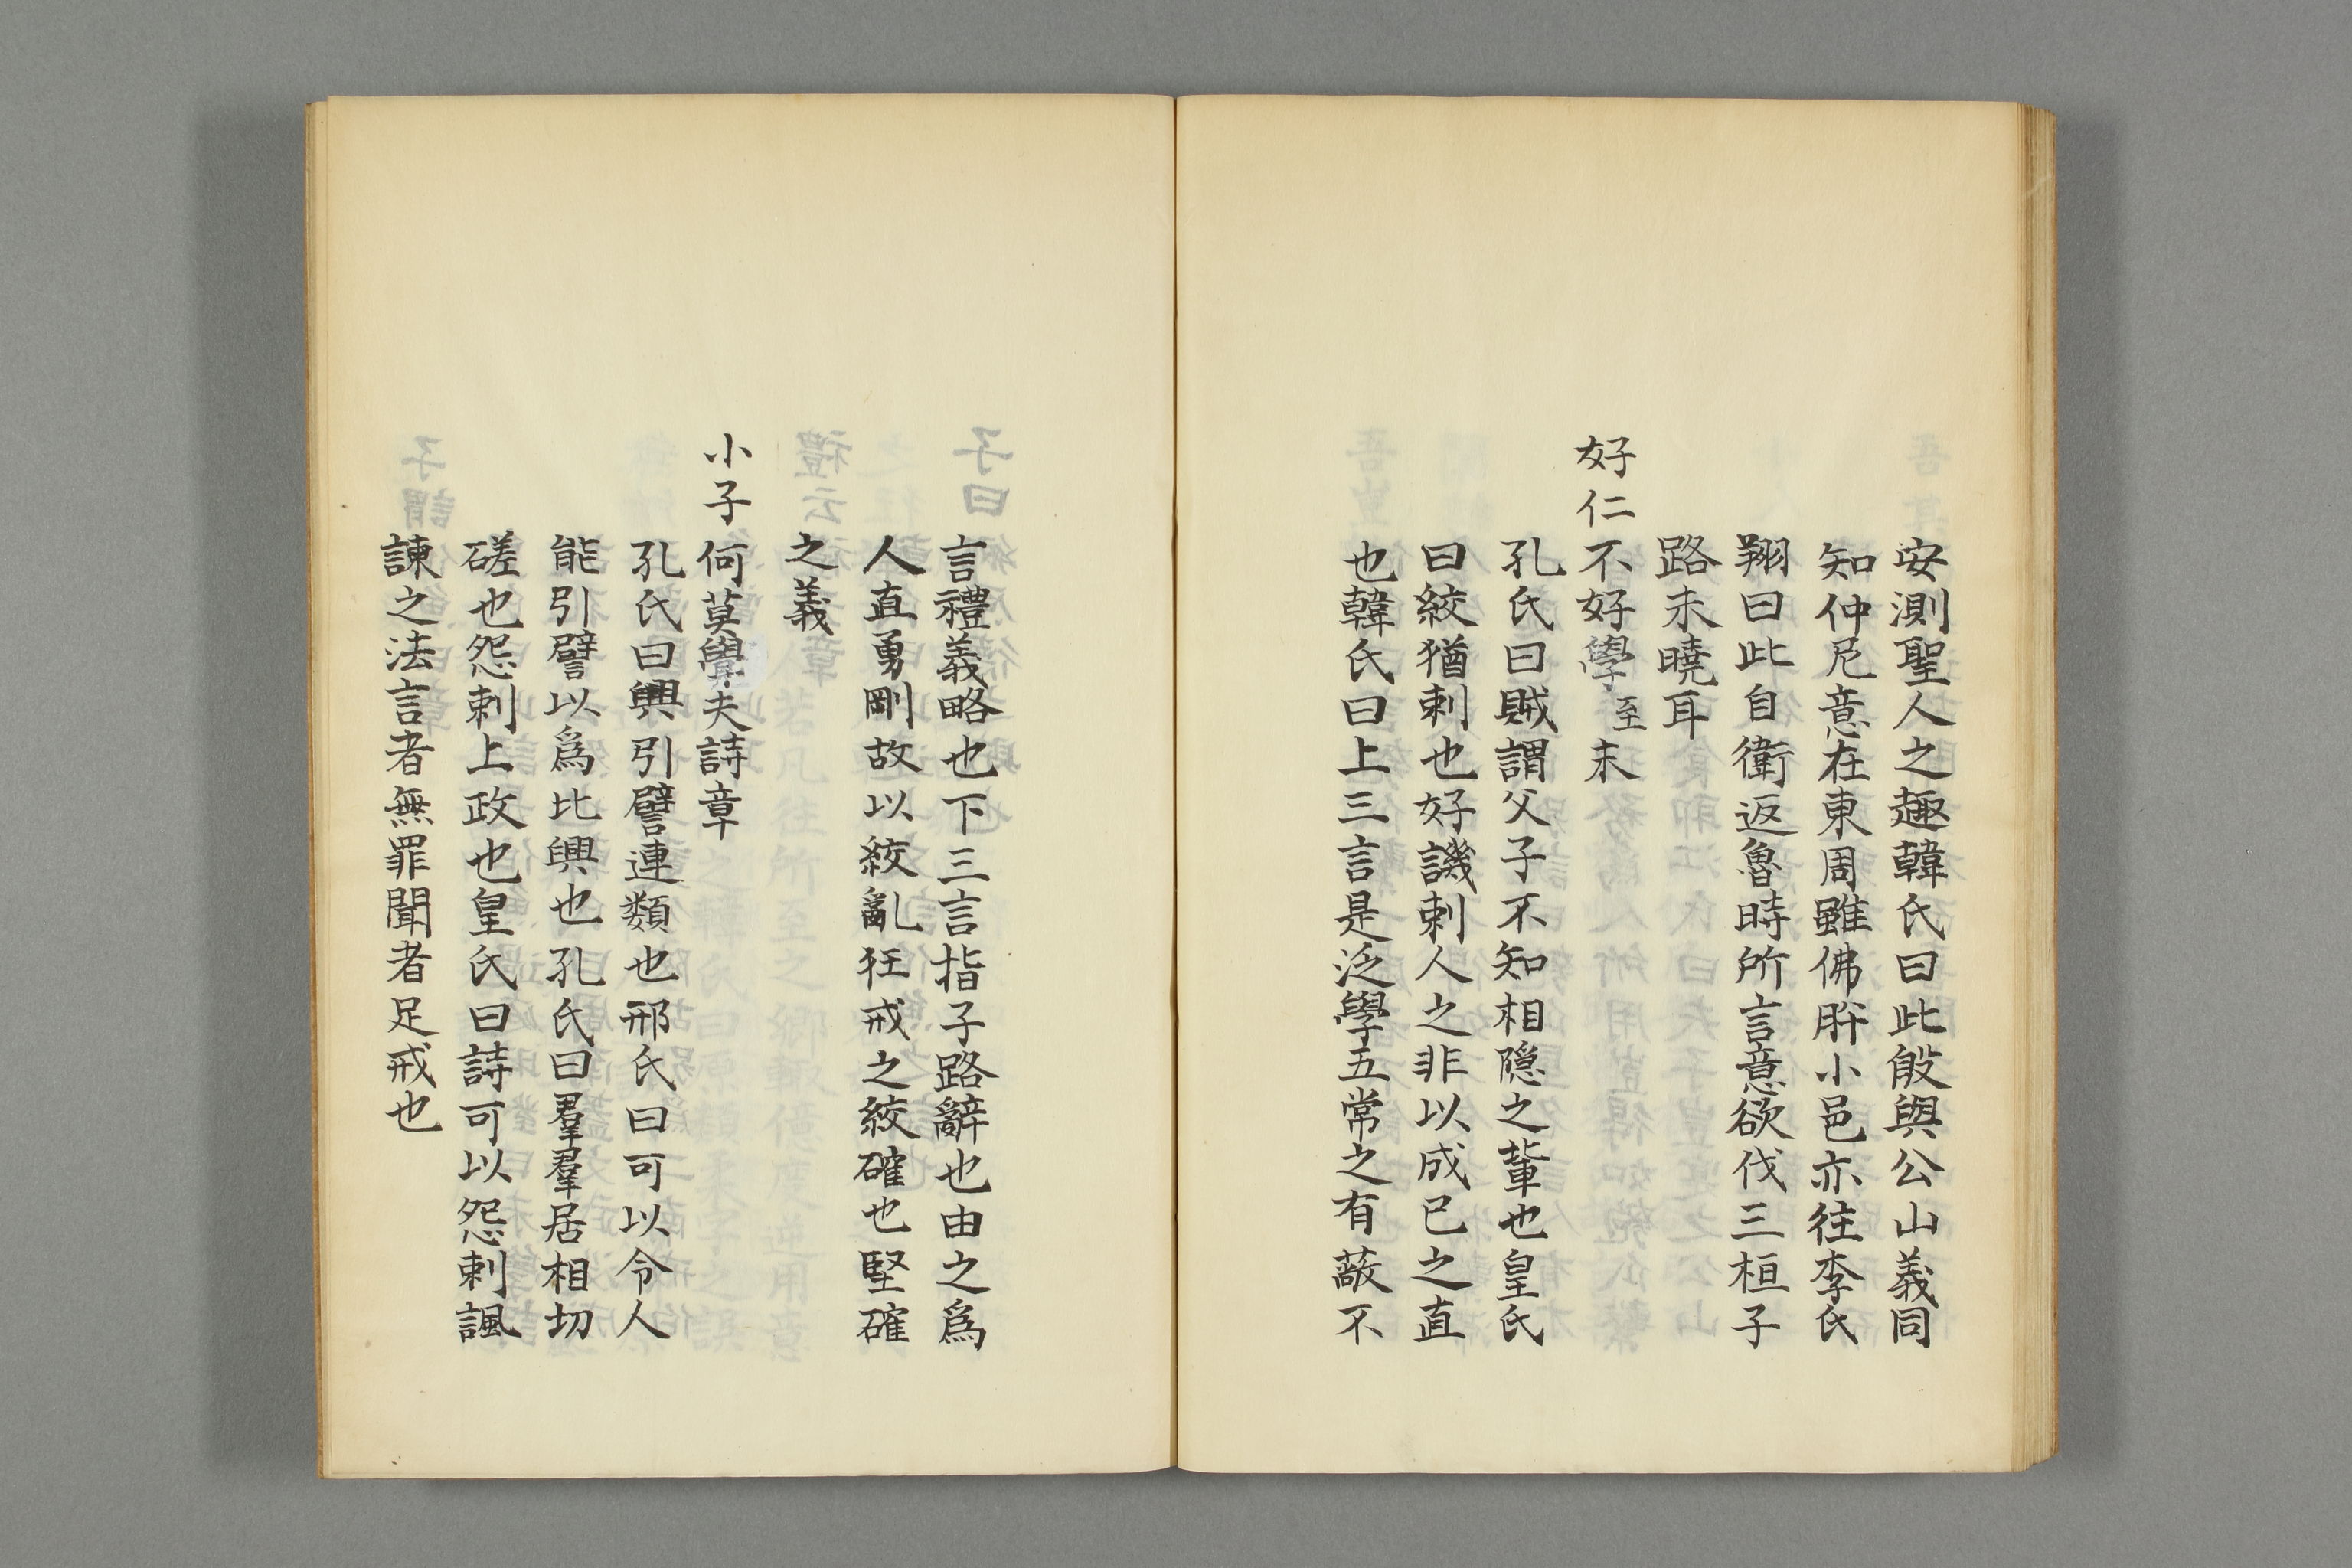 安測聖人之趣韓氏曰此段與公山義同
知仲尼意在東周雖佛肸小邑亦往李氏
翔曰此自衛返魯時所言意欲伐三桓子
路未曉耳
好仁不好學至末
孔氏曰賊謂父子不知相隱之輩也皇氏
曰絞猶刺也好譏刺人之非以成已之直
也韓氏曰上三言是泛學五常之有蔽不
言禮義略也下三言指子路辭也由之爲
人直勇剛故以絞亂狂戒之絞確也堅確
之義
小子何莫學夫詩章
孔氏曰興引譬連類也邢氏曰可以令人
能引譬以爲比興也孔氏曰羣羣居相切
磋也怨刺上政也皇氏曰詩可以怨刺諷
諫之法言者無罪聞者足戒也